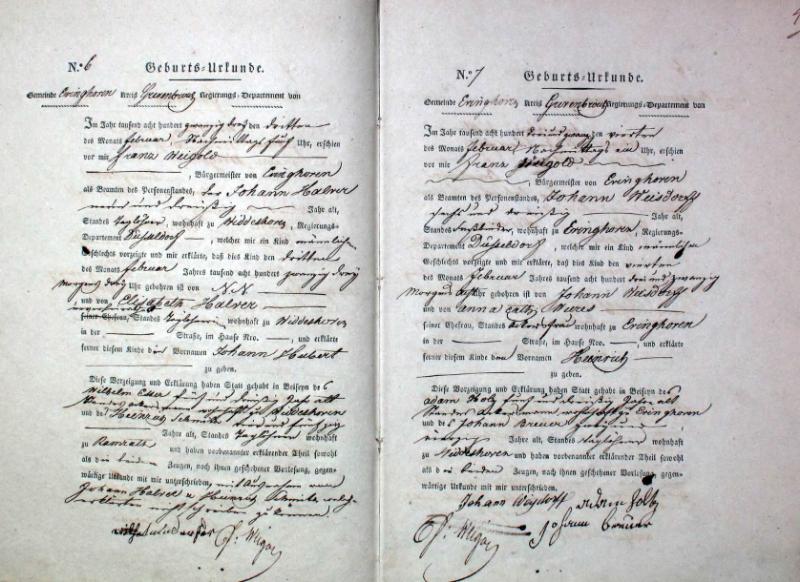 N.º 6 Geburts-Urkunde.
Gemeinde Evinghoven Kreis Grevenbroich Regierungs-Departement von
Im Jahr tausend acht hundert zwanzig drey den dritten
des Monats februar, Nachmittags fünf Uhr, erschien
vor mir Franz Weigold
, Bürgermeister von Evinghoven
als Beamten des Personenstandes, der Johann Halver
und dreißig Jahr alt,
Standes Taglöhner, wohnhaft zu Widdeshoven, Regierungs-
Departement Düsseldorf, welcher mir ein Kind männlichen
Geschlechts vorzeigte und mir erklärte, daß dies Kind den dritten
des Monats februar Jahres tausend acht hundert zwanzig drey
Morgens drey Uhr gebohren ist von N.N.
und von Elisabeth Halver
seiner Ehefrau, Standes wohnhaft zu Widdeshoven
in der Straße, im Hause Nro. , und erklärte
ferner diesem Kinde den Vornamen Johann Hubert
zu geben.
Diese Vorzeigung und Erklärung haben Statt gehabt in Beiseyn des
Wilhelm Esser fünf und dreißig Jahr alt
Standes Ackersmann wohnhaft zu Widdeshoven
und des Heinrich Schmitz und
Jahre alt, Standes Taglöhner wohnhaft
zu Ramrath und haben vorbenannter erklärender Theil sowohl
als die beiden Zeugen, nach ihnen geschehener Vorlesung, gegen-
wärtige Urkunde mit mir unterschrieben, mit Ausnahme von
Johann Halver u Heinrich Schmitz welche
erklärten nicht schreiben zu können.
N.º 7 Geburts-Urkunde.
Gemeinde Evinghoven Kreis Grevenbroich Regierungs-Departement von
Im Jahr tausend acht hundert drei und zwanzig den vierten
des Monats februar Nachmittags ein Uhr, erschien
vor mir Franz Weigold
, Bürgermeister von Evinghoven
als Beamten des Personenstandes, Johann Weisdorff
sechs und dreißig Jahre alt,
Standes Faßbinder, wohnhaft zu Evinghoven, Regierungs-
Departement Düsseldorf, welcher mir ein Kind männlichen
Geschlechts vorzeigte und mir erklärte, daß dies Kind den vierten
des Monats Februar Jahres tausend acht hundert drei und zwanzig
Morgens Uhr gebohren ist von Johann Weisdorff
und von Anna Cath. Wieres
seiner Ehefrau, Standes wohnhaft zu Evinghoven
in der Straße, im Hause Nro. , und erklärte
ferner diesem Kinde den Vornamen Heinrich
zu geben.
Diese Vorzeigung und Erklärung haben Statt gehabt in Beiseyn des
Adam Holz fünf und dreißig Jahre alt
Standes Ackersmann, wohnhaft zu Evinghoven
und des Johann Breuer
Jahre alt, Standes Taglöhner wohnhaft
zu Widdeshoven und haben vorbenannter erklärender Theil sowohl
als die beiden Zeugen, nach ihnen geschehener Vorlesung, gegen-
wärtige Urkunde mit mir unterschrieben.
Johann Weisdorff Adam Holtz
Johann Breuer